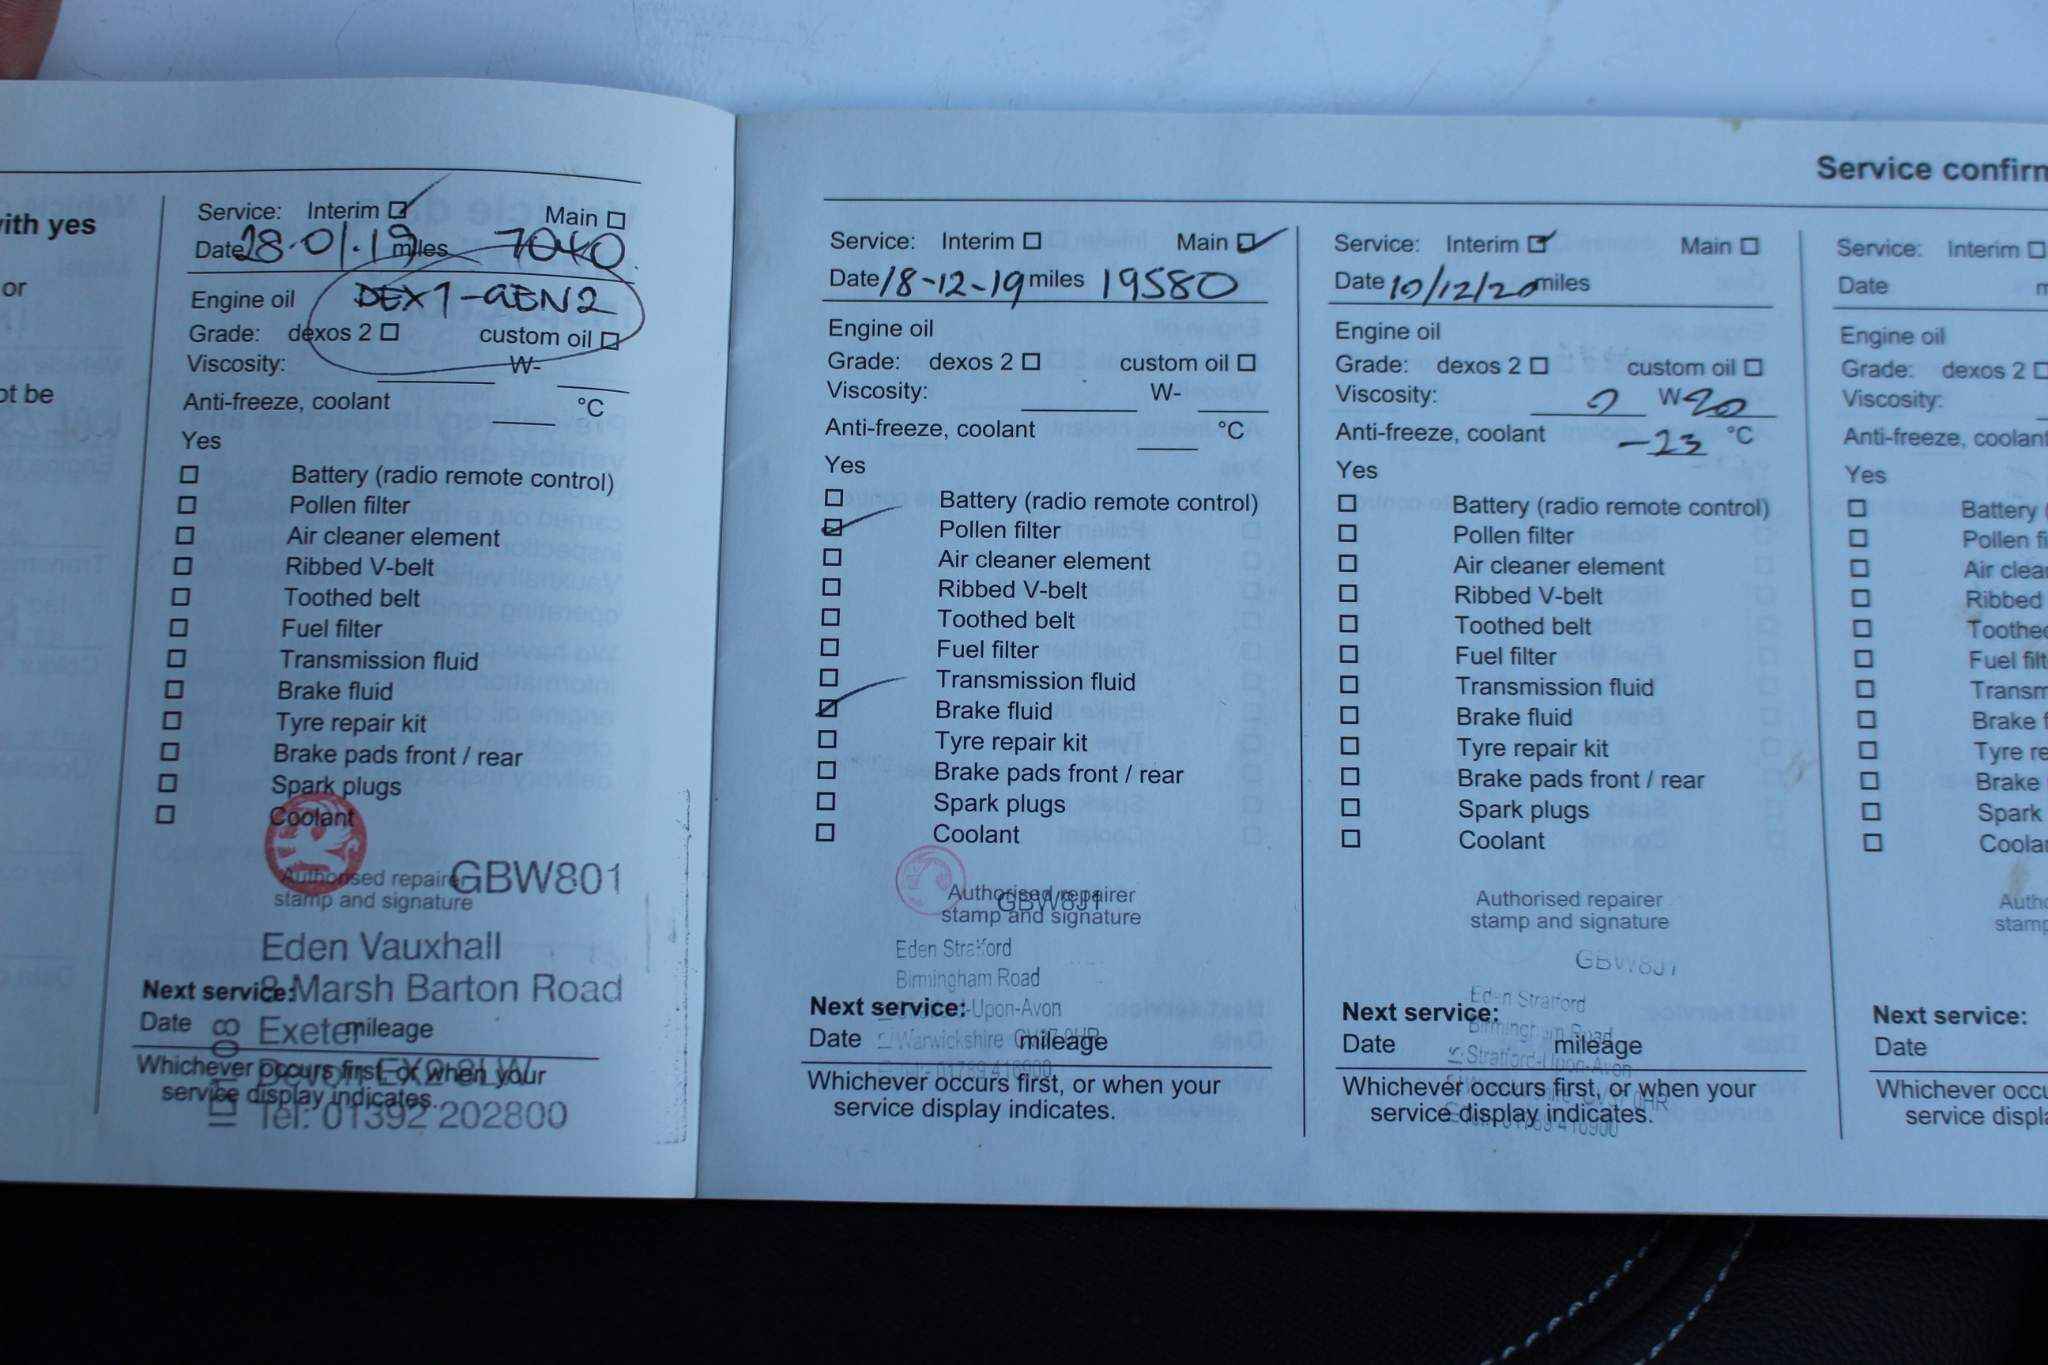 ith yes
or
ot be
Service: Interim Main
Date 28-01-19 miles 7040
Engine oil DEX1-GEN2
Grade: dexos 2 custom oil
Viscosity: W-
Anti-freeze, coolant °C
Yes
Battery (radio remote control)
Pollen filter
Air cleaner element
Ribbed V-belt
Toothed belt
Fuel filter
Transmission fluid
Brake fluid
Tyre repair kit
Brake pads front / rear
Spark plugs
Coolant
Authorised repairer GBW801
stamp and signature
Eden Vauxhall
8 Marsh Barton Road
Next service:
Exeter
Date mileage
Devon EX2 8LW
Whichever occurs first, or when your
service display indicates.
Tel: 01392 202800
Service: Interim Main
Date 18-12-19 miles 19580
Engine oil
Grade: dexos 2 custom oil
Viscosity: W-
Anti-freeze, coolant °C
Yes
Battery (radio remote control)
Pollen filter
Air cleaner element
Ribbed V-belt
Toothed belt
Fuel filter
Transmission fluid
Brake fluid
Tyre repair kit
Brake pads front / rear
Spark plugs
Coolant
Authorised repairer
GBW8J1
stamp and signature
Eden Stratford
Birmingham Road
Stratford-Upon-Avon
Next service:
Warwickshire CV37 0HR
Date mileage
Tel: 01789 416900
Whichever occurs first, or when your
service display indicates.
Service confirm
Service: Interim Main
Date 10/12/20 miles
Engine oil
Grade: dexos 2 custom oil
Viscosity: 0 W-20
Anti-freeze, coolant -23 °C
Yes
Battery (radio remote control)
Pollen filter
Air cleaner element
Ribbed V-belt
Toothed belt
Fuel filter
Transmission fluid
Brake fluid
Tyre repair kit
Brake pads front / rear
Spark plugs
Coolant
Authorised repairer
stamp and signature
GBW8J1
Eden Stratford
Birmingham Road
Next service:
Stratford-Upon-Avon
Date mileage
Warwickshire CV37 0HR
Tel: 01789 416900
Whichever occurs first, or when your
service display indicates.
Service: Interim
Date m
Engine oil
Grade: dexos 2
Viscosity:
Anti-freeze, coolant
Yes
Battery (
Pollen fi
Air clea
Ribbed
Toothed
Fuel filt
Transm
Brake f
Tyre re
Brake
Spark
Coola
Autho
stamp
Next service:
Date
Whichever occu
service displa